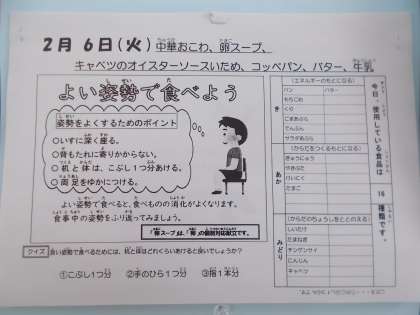 2月 6日(火)中華おこわ、卵スープ、
キャベツのオイスターソースいため、コッペパン、バター、牛乳
よい姿勢で食べよう
姿勢をよくするためのポイント
○いすに深く座る。
○背もたれに寄りかからない。
○机と体は、こぶし1つ分あける。
○両足をゆかにつける。
よい姿勢で食べると、食べものの消化がよくなります。
食事中の姿勢をふり返ってみましょう。
「卵スープ」は、「卵」の個別対応献立です。
クイズ 良い姿勢で食べるためには、机と体はどれくらいあけると良いでしょうか?
①こぶし1つ分 ②手のひら1つ分 ③指1本分
今日、使用している食品は 16 種類です。
き
(エネルギーのもとになる)
パン バター
もちごめ
ごまあぶら
でんぷん
サラダあぶら
あか
(からだをつくるもとになる)
ぎゅうにゅう
やきぶた
たまご
みどり
(からだのちょうしをととのえる)
しいたけ
たまねぎ
チンゲンサイ
にんじん
キャベツ